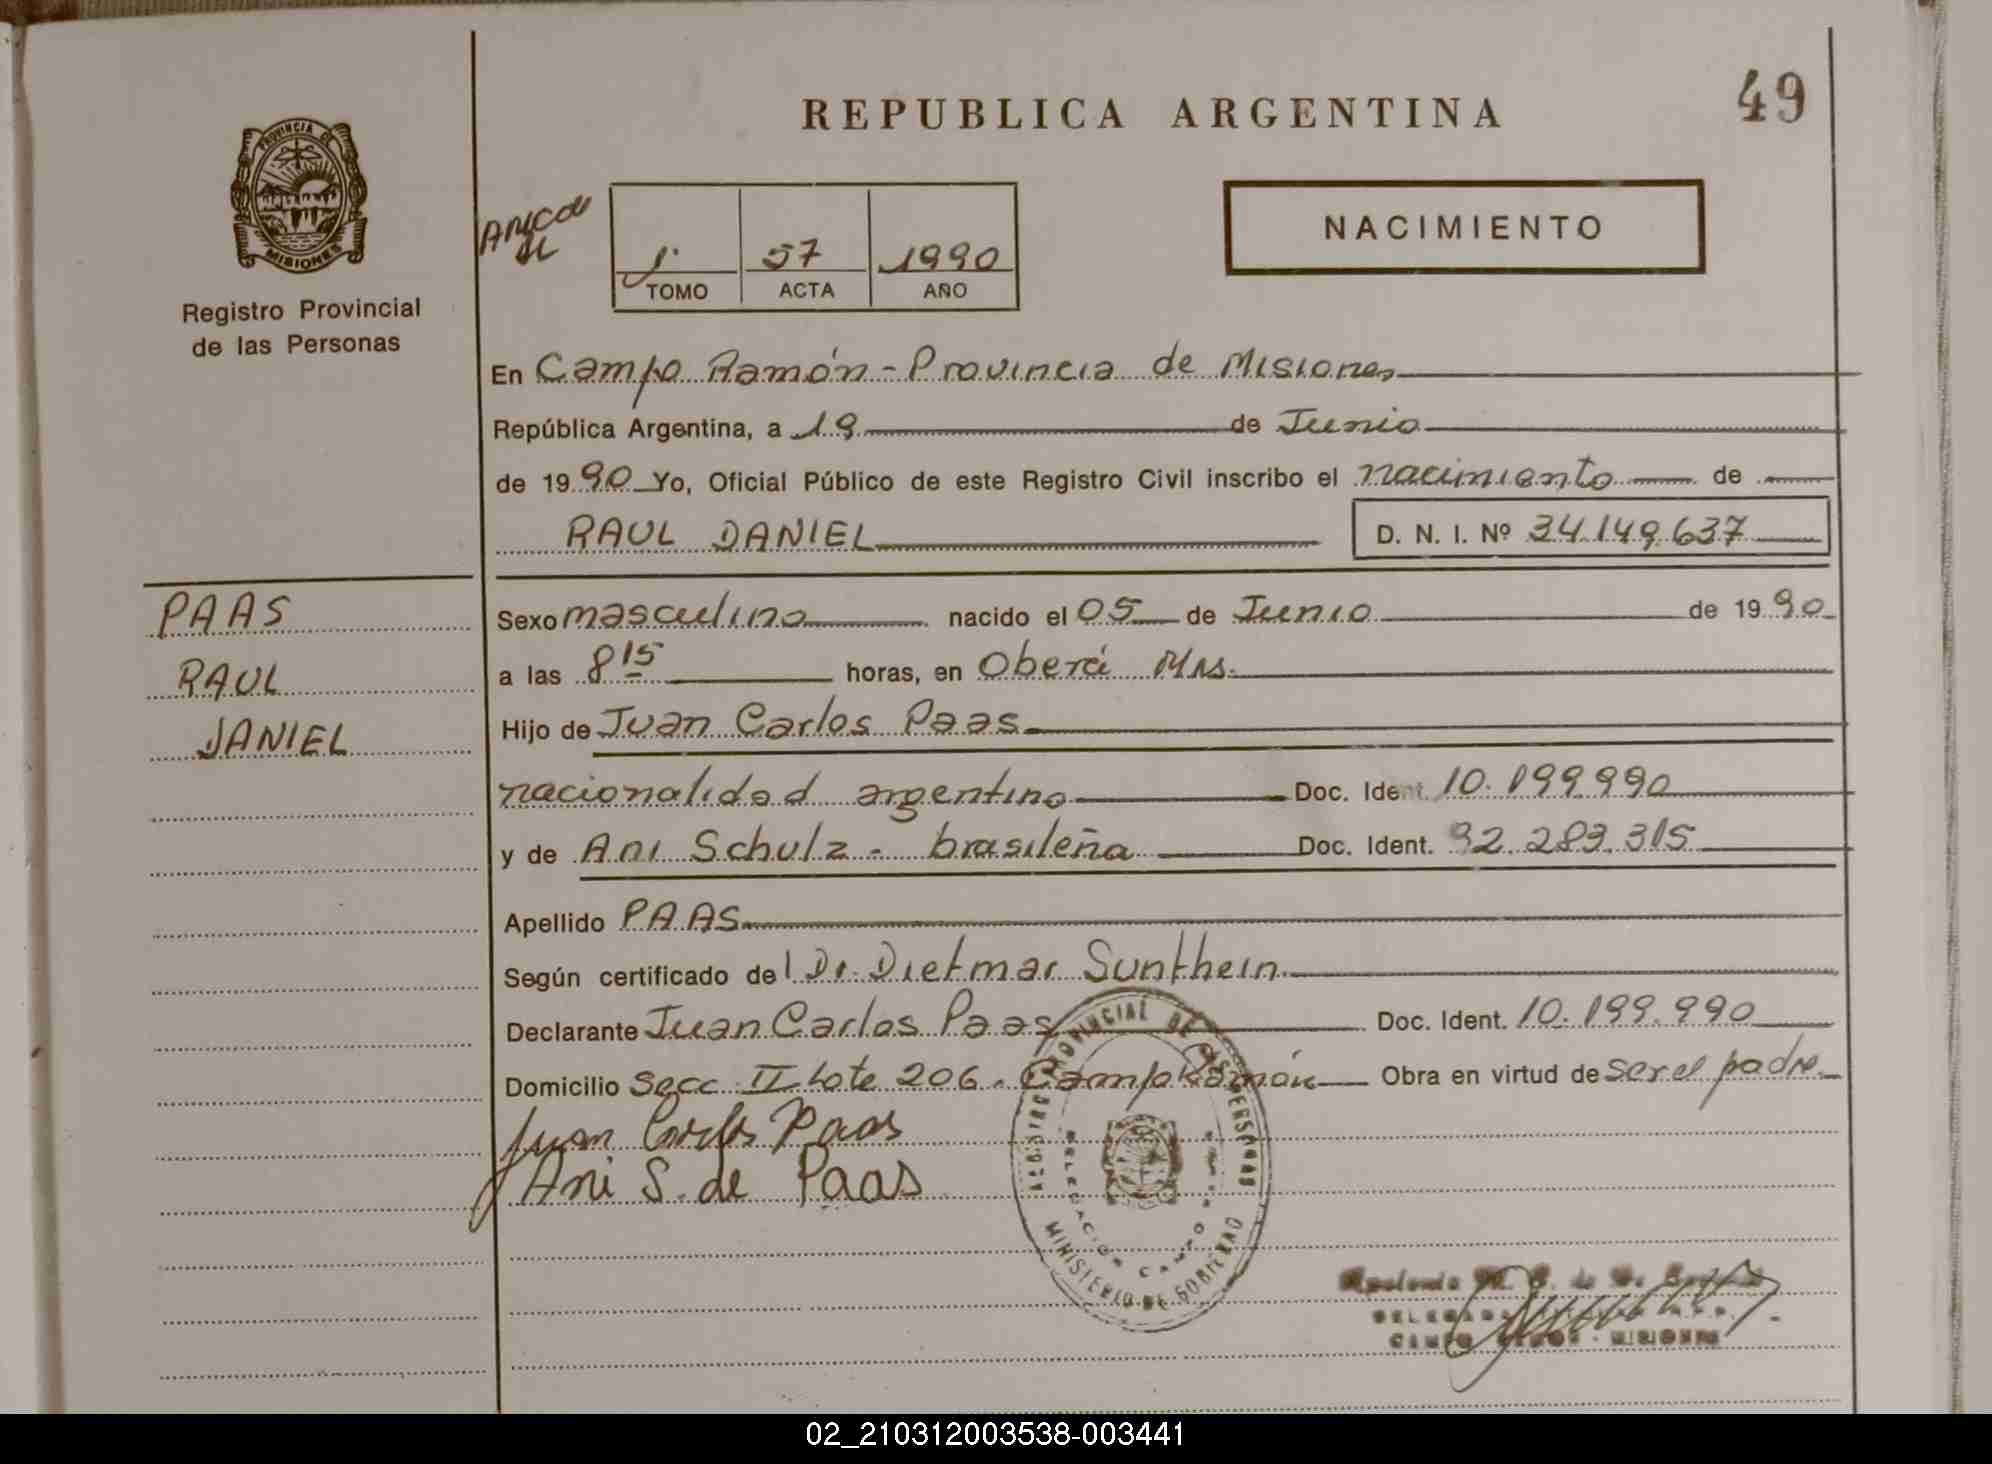 REPUBLICA ARGENTINA
49
PROVINCIA DE
MISIONES
Registro Provincial
de las Personas
1º 57 1990
TOMO ACTA AÑO
NACIMIENTO
En Campo Ramón - Provincia de Misiones
República Argentina, a 19 de Junio
de 1990 Yo, Oficial Público de este Registro Civil inscribo el nacimiento de
RAUL DANIEL D. N. I. Nº 34.149.637
PAAS
RAUL
DANIEL
Sexo masculino nacido el 05 de Junio de 1990
a las 8 15 horas, en Oberá Mns.
Hijo de Juan Carlos Paas
nacionalidad argentino Doc. Ident. 10.199.990
y de Ani Schulz - brasileña Doc. Ident. 92.283.315
Apellido PAAS
Según certificado del Dr. Dietmar Sunthein
Declarante Juan Carlos Paas Doc. Ident. 10.199.990
Domicilio Secc II Lote 206. Campo Ramón Obra en virtud de ser el padre
Juan Carlos Paas
Ani S. de Paas
REGISTRO PROVINCIAL DE LAS PERSONAS
DELEGACION CAMPO
MINISTERIO DE GOBIERNO
CAMPO RAMON - MISIONES
02_210312003538-003441